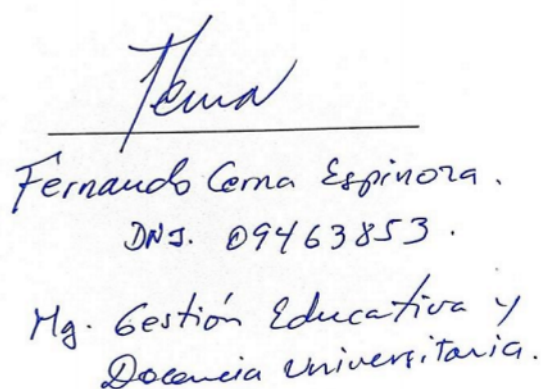 Fernando Cerna Espinoza.
DNI. 09463853.
Mg. Gestión Educativa y
Docencia Universitaria.